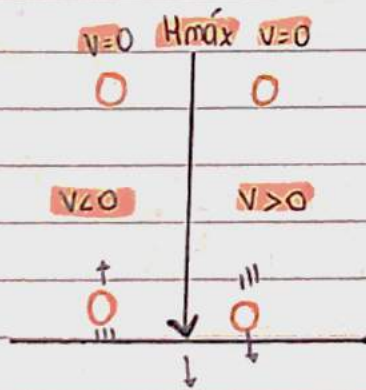 V=0 Hmáx V=0
V<0 V>0